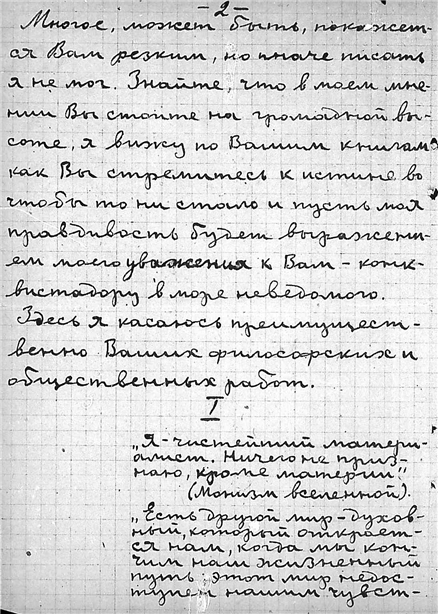 - 2 -
Многое, может быть, покажет-
ся Вам резким, но иначе писать
я не мог. Знайте, что в моем мне-
нии Вы стоите на громадной вы-
соте, я вижу по Вашим книгам,
как Вы стремитесь к истине во
чтобы то ни стало и пусть моя
правдивость будет выражени-
ем моего уважения к Вам - конк-
вистадору в море неведомого.
Здесь я касаюсь преимущест-
венно Ваших философских и
общественных работ.
I
„Я - чистейший матери-
алист. Ничего не приз-
наю, кроме материи".
(Монизм вселенной).
„Есть другой мир - духов-
ный, который открывает-
ся нам, когда мы кон-
чим наш жизненный
путь; этот мир недос-
тупен нашим чувст-